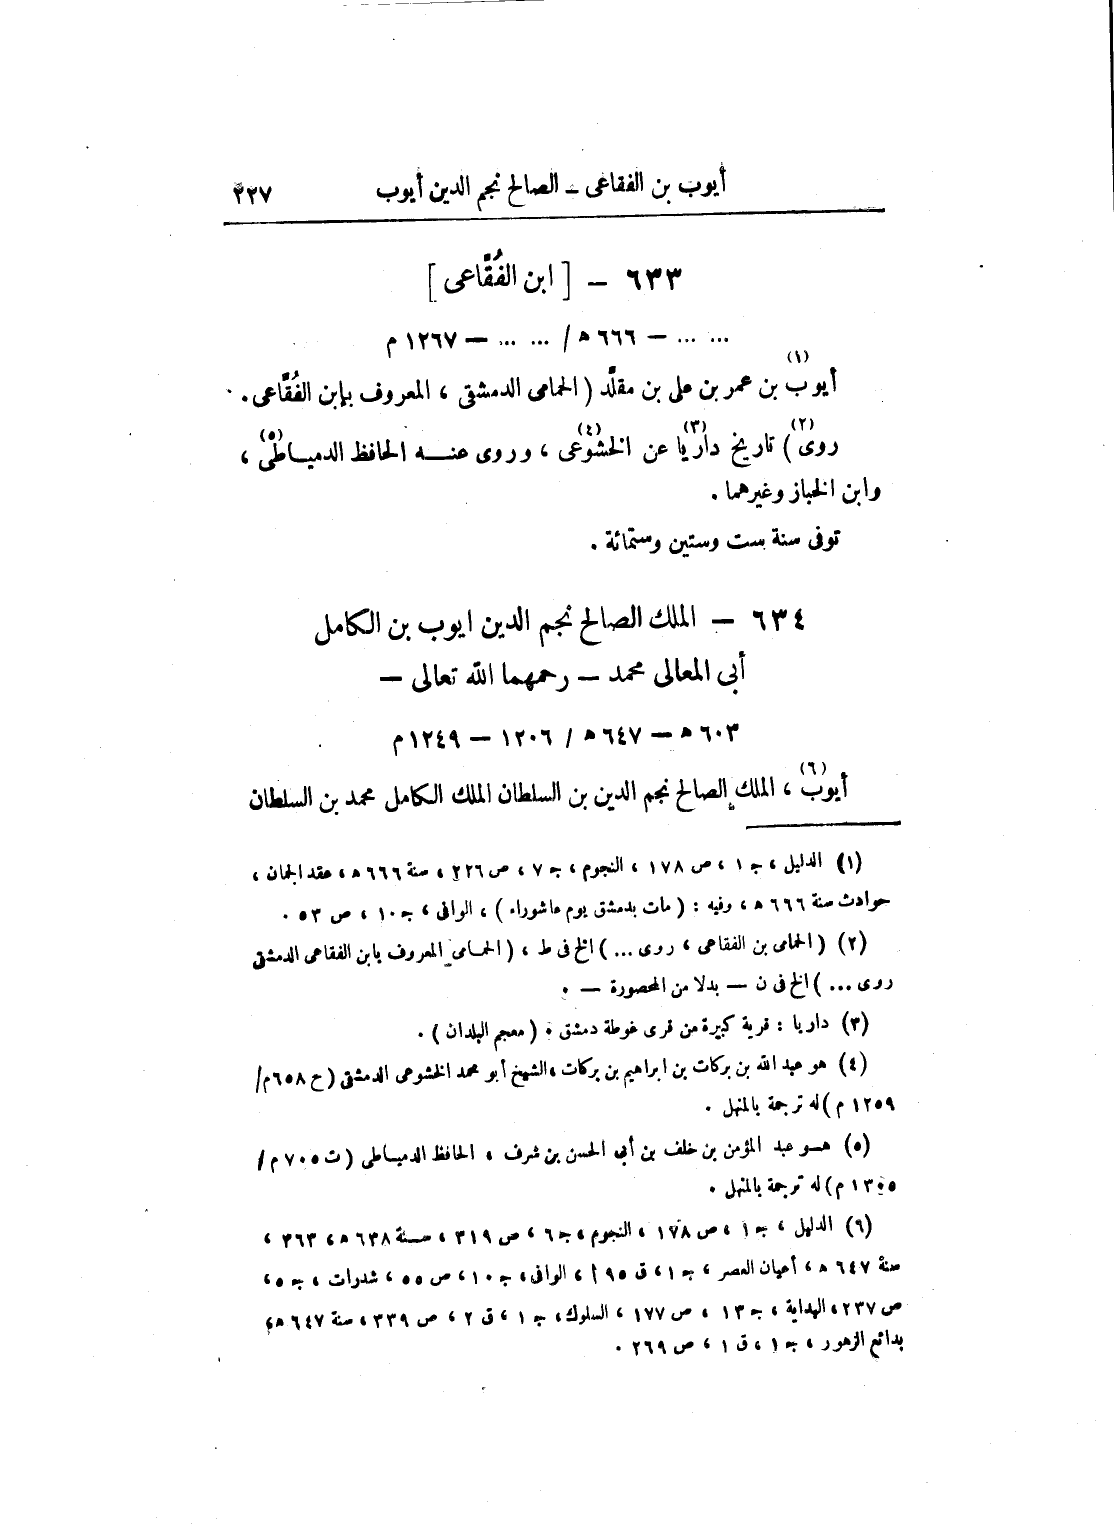 أيوب بن الفقاعى – الصالح نجم الدين أيوب ٢٢٧
٦٣٣ – [ ابن الفُقَّاعى ]
... ... – ٦٦٦ ھ / ... ... – ١٢٦٧ م
أيوب (١) بن عمر بن على بن مقلَّد ( الحمامى الدمشقى ، المعروف بإبن الفُقَّاعى .
روى (٢) ) تاريخ داريا (٣) عن الخشوعى (٤) ، وروى عنـــه الحافظ الدميـاطى (٥) ،
وابن الخباز وغيرهما .
توفى سنة ست وستين وستمائة .
٦٣٤ – الملك الصالح نجم الدين ايوب بن الكامل
أبى المعالى محمد – رحمهما الله تعالى –
٦٠٣ ھ – ٦٤٧ ھ / ١٢٠٦ – ١٢٤٩ م
أيوب (٦) ، الملك الصالح نجم الدين بن السلطان الملك الكامل محمد بن السلطان
(١) الدليل ، جـ ١ ، ص ١٧٨ ، النجوم ، جـ ٧ ، ص ٢٢٦ ، سنة ٦٦٦ ھ ، عقد الجمان ،
حوادث سنة ٦٦٦ ھ ، وفيه : ( مات بدمشق يوم عاشوراء ) ، الوافى ، جـ ١٠ ، ص ٥٣ .
(٢) ( الحمامى بن الفقاعى ، روى ... ) الخ فى ط ، ( الحمـامى المعروف بابن الفقاعى الدمشقى
روى ... ) الخ فى ن – بدلا من المحصورة – .
(٣) داريا : قرية كبيرة من قرى غوطة دمشق . ( معجم البلدان ) .
(٤) هو عبد الله بن بركات بن ابراهيم بن بركات ، الشيخ أبو محمد الخشوعى الدمشقى ( ح ٦٥٨ م /
١٢٥٩ م ) له ترجمة بالمنهل .
(٥) هـو عبد المؤمن بن خلف بن أبى الحسن بن شرف ، الحافظ الدميـاطى ( ت ٧٠٥ م /
١٣٠٥ م ) له ترجمة بالمنهل .
(٦) الدليل ، جـ ١ ، ص ١٧٨ ، النجوم ، جـ ٦ ، ص ٣١٩ ، سـنة ٦٣٨ ھ ، ٣٦٣ ،
سنة ٦٤٧ ھ ، أعيان العصر ، جـ ١ ، ق ٩٥ أ ، الوافى ، جـ ١٠ ، ص ٥٥ ، شذرات ، جـ ٥ ،
ص ٢٣٧ ، البداية ، جـ ١٣ ، ص ١٧٧ ، السلوك ، جـ ١ ، ق ٢ ، ص ٣٣٩ ، سنة ٦٤٧ ھ ،
بدائع الزهور ، جـ ١ ، ق ١ ، ص ٢٦٩ .